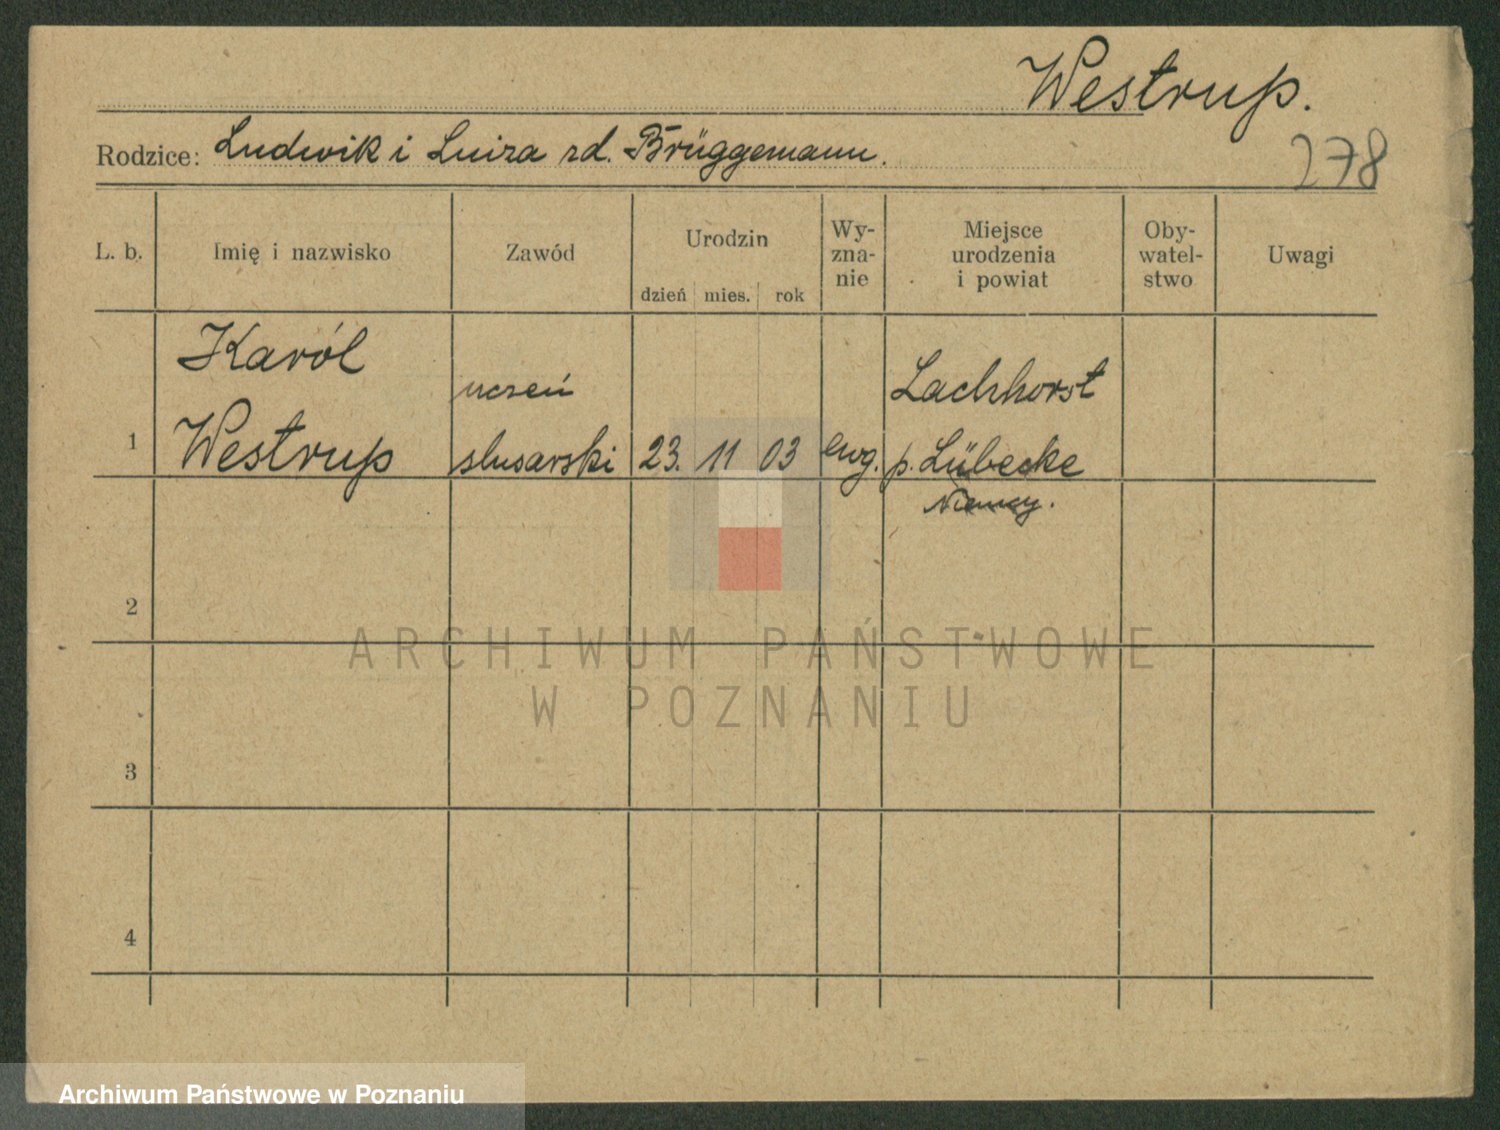 Westrup.
Rodzice: Ludwik i Luiza zd. Brüggemann.
278
L. b. Imię i nazwisko Zawód Urodzin Wy- Miejsce Oby- Uwagi
zna- urodzenia watel-
nie i powiat stwo
dzień mies. rok
Karól
uczeń Lachhorst
1 Westrup slusarski 23. 11 03 ewg. p. Lübecke
Niemcy.
2
ARCHIWUM PAŃSTWOWE
W POZNANIU
3
4
Archiwum Państwowe w Poznaniu